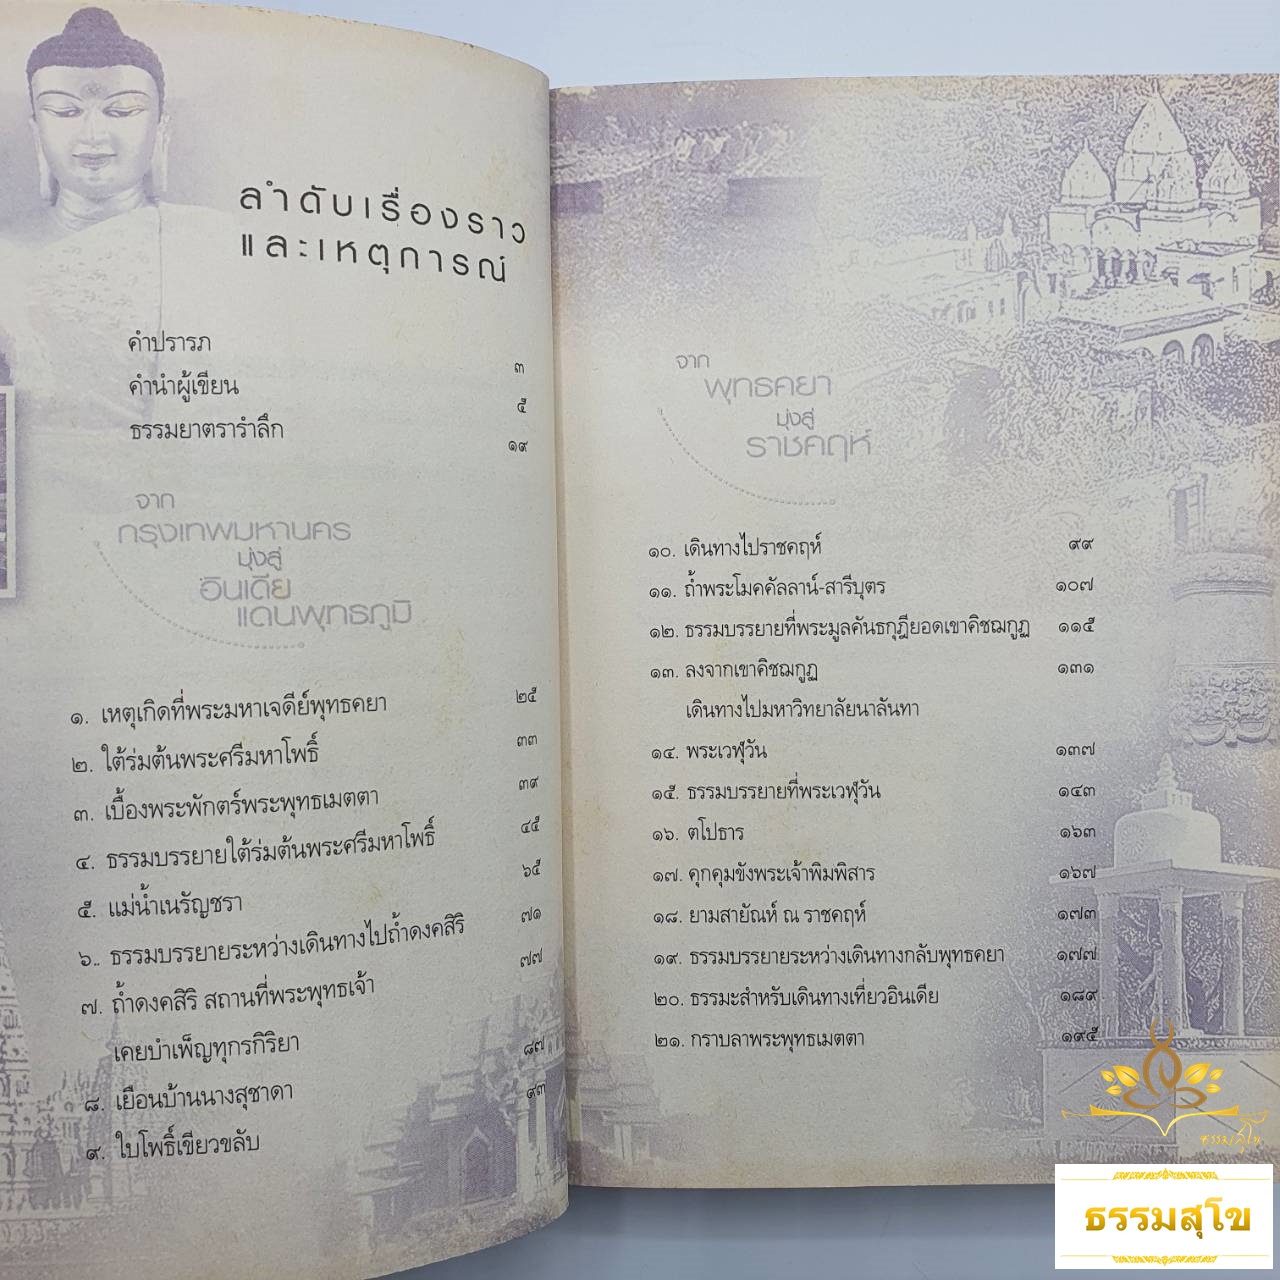 ลำดับเรื่องราว
และเหตุการณ์
คำปรารภ ๓
คำนำผู้เขียน ๕
ธรรมยาตรารำลึก ๑๙
จาก
กรุงเทพมหานคร
มุ่งสู่
อินเดีย
แดนพุทธภูมิ
๑. เหตุเกิดที่พระมหาเจดีย์พุทธคยา ๒๕
๒. ใต้ร่มต้นพระศรีมหาโพธิ์ ๓๓
๓. เบื้องพระพักตร์พระพุทธเมตตา ๓๙
๔. ธรรมบรรยายใต้ร่มต้นพระศรีมหาโพธิ์ ๔๕
๕. แม่น้ำเนรัญชรา ๖๕
๖.. ธรรมบรรยายระหว่างเดินทางไปถ้ำดงคสิริ ๗๑
๗. ถ้ำดงคสิริ สถานที่พระพุทธเจ้า ๗๗
เคยบำเพ็ญทุกรกิริยา
๘. เยือนบ้านนางสุชาดา ๘๗
๙. ใบโพธิ์เขียวขลับ ๙๓
จาก
พุทธคยา
มุ่งสู่
ราชคฤห์
๑๐. เดินทางไปราชคฤห์ ๙๙
๑๑. ถ้ำพระโมคคัลลาน์-สารีบุตร ๑๐๗
๑๒. ธรรมบรรยายที่พระมูลคันธกุฎียอดเขาคิชฌกูฏ ๑๑๕
๑๓. ลงจากเขาคิชฌกูฏ ๑๓๑
เดินทางไปมหาวิทยาลัยนาลันทา
๑๔. พระเวฬุวัน ๑๓๗
๑๕. ธรรมบรรยายที่พระเวฬุวัน ๑๔๓
๑๖. ตโปธาร ๑๖๓
๑๗. คุกคุมขังพระเจ้าพิมพิสาร ๑๖๗
๑๘. ยามสายัณห์ ณ ราชคฤห์ ๑๗๓
๑๙. ธรรมบรรยายระหว่างเดินทางกลับพุทธคยา ๑๗๗
๒๐. ธรรมะสำหรับเดินทางเที่ยวอินเดีย ๑๘๙
๒๑. กราบลาพระพุทธเมตตา ๑๙๕
ธรรมสุโข
ธรรมสุโข